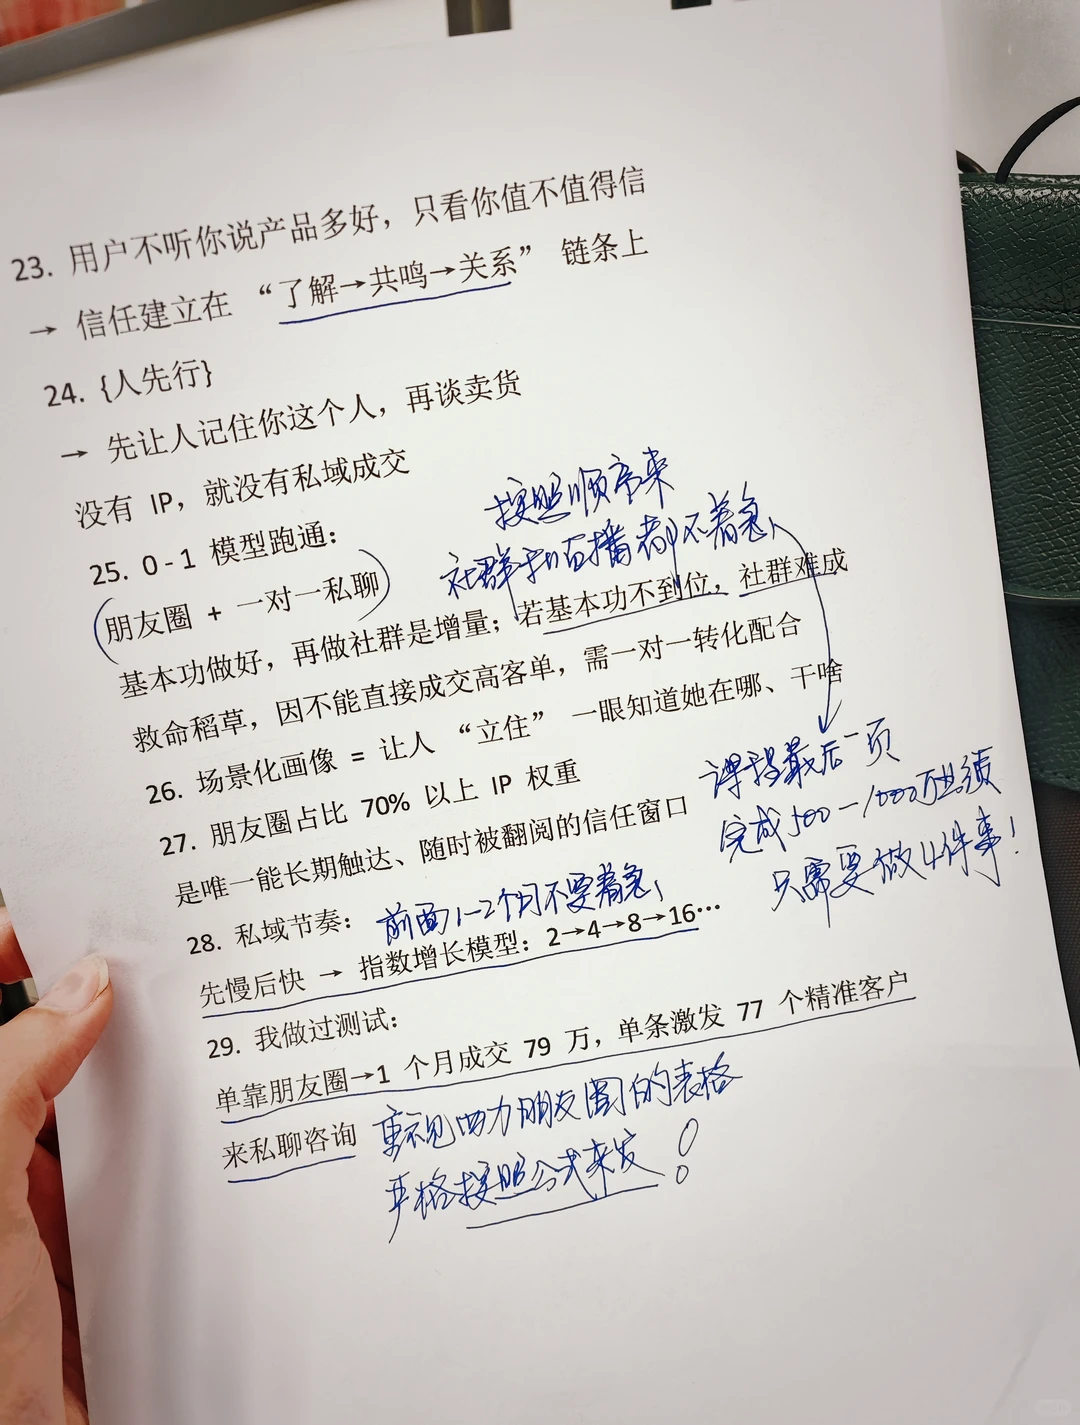 23. 用户不听你说产品多好，只看你值不值得信
→ 信任建立在 “了解→共鸣→关系” 链条上
24. {人先行}
→ 先让人记住你这个人，再谈卖货
没有 IP，就没有私域成交
按照顺序来
25. 0-1 模型跑通：
社群和直播都不着急、
(朋友圈 + 一对一私聊)
基本功做好，再做社群是增量；若基本功不到位，社群难成
救命稻草，因不能直接成交高客单，需一对一转化配合
26. 场景化画像 = 让人 “立住” 一眼知道她在哪、干啥
27. 朋友圈占比 70% 以上 IP 权重
课程最后一页
是唯一能长期触达、随时被翻阅的信任窗口
完成500-1000万业绩
只需要做4件事！
28. 私域节奏：
前面1-2个月不要着急、
先慢后快 → 指数增长模型：2→4→8→16…
29. 我做过测试：
单靠朋友圈→1 个月成交 79 万，单条激发 77 个精准客户
来私聊咨询
朋友圈的表格
严格按照公式来发！